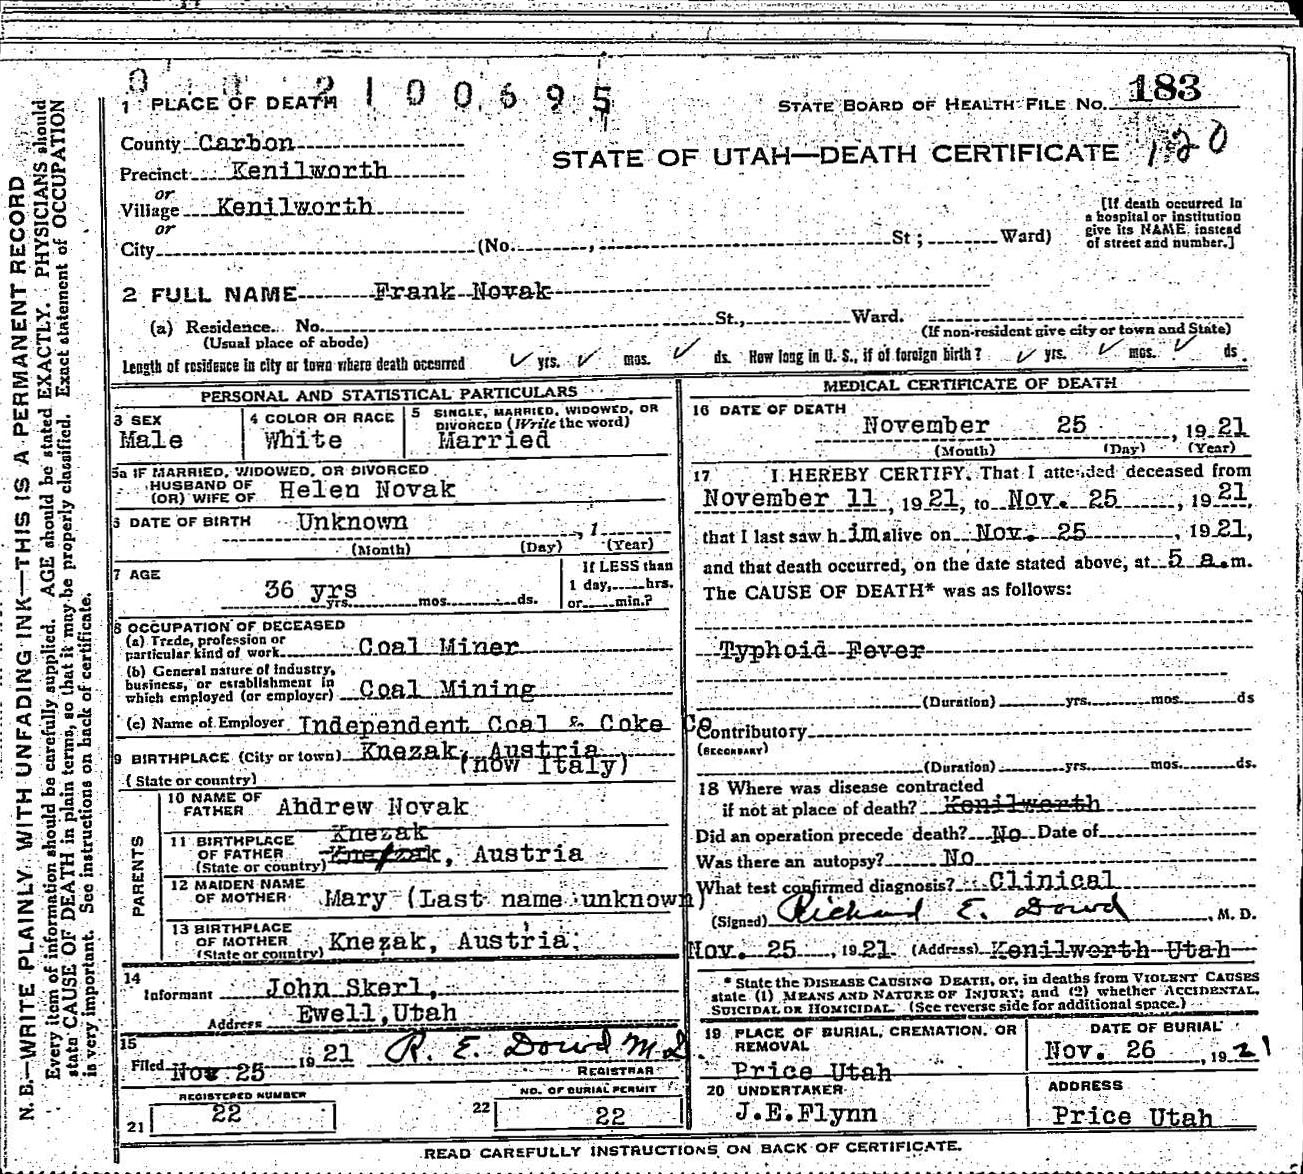 N. B.—WRITE PLAINLY, WITH UNFADING INK—THIS IS A PERMANENT RECORD
Every item of information should be carefully supplied. AGE should be stated EXACTLY. PHYSICIANS should
state CAUSE OF DEATH in plain terms, so that it may be properly classified. Exact statement of OCCUPATION
is very important. See instructions on back of certificate.
2100695
1 PLACE OF DEATH
STATE BOARD OF HEALTH FILE NO. 183
County Carbon
STATE OF UTAH—DEATH CERTIFICATE 120
Precinct Kenilworth
or
Village Kenilworth
or
City (No. , St ; Ward)
[If death occurred in
a hospital or institution
give its NAME instead
of street and number.]
2 FULL NAME Frank Novak
(a) Residence. No. St., Ward.
(Usual place of abode) (If non-resident give city or town and State)
Length of residence in city or town where death occurred ✓ yrs. ✓ mos. ✓ ds. How long in U. S., if of foreign birth? ✓ yrs. ✓ mos. ✓ ds.
PERSONAL AND STATISTICAL PARTICULARS
3 SEX
Male
4 COLOR OR RACE
White
5 SINGLE, MARRIED, WIDOWED, OR
DIVORCED (Write the word)
Married
5a IF MARRIED, WIDOWED, OR DIVORCED
HUSBAND OF
(OR) WIFE OF Helen Novak
6 DATE OF BIRTH Unknown , 1
(Month) (Day) (Year)
7 AGE
36 yrs
yrs. mos. ds.
If LESS than
1 day, hrs.
or min.?
8 OCCUPATION OF DECEASED
(a) Trade, profession or
particular kind of work Coal Miner
(b) General nature of industry,
business, or establishment in
which employed (or employer) Coal Mining
(c) Name of Employer Independent Coal & Coke Co
9 BIRTHPLACE (City or town) Knezak, Austria
(State or country) (now Italy)
PARENTS
10 NAME OF
FATHER Ahdrew Novak
11 BIRTHPLACE
OF FATHER
(State or country) Knezak
, Austria
12 MAIDEN NAME
OF MOTHER Mary (Last name unknown)
13 BIRTHPLACE
OF MOTHER
(State or country) Knezak, Austria
14
Informant John Skerl,
Address Ewell, Utah
15
Filed Nov 25 1921 R. E. Dowd M.D.
REGISTRAR
REGISTERED NUMBER
21 22
NO. OF BURIAL PERMIT
22 22
MEDICAL CERTIFICATE OF DEATH
16 DATE OF DEATH
November 25 , 1921
(Month) (Day) (Year)
17 I HEREBY CERTIFY, That I attended deceased from
November 11, 1921, to Nov. 25 , 1921,
that I last saw h im alive on Nov. 25 , 1921,
and that death occurred, on the date stated above, at 5 a.m.
The CAUSE OF DEATH* was as follows:
Typhoid Fever
(Duration) yrs. mos. ds
Contributory
(SECONDARY)
(Duration) yrs. mos. ds.
18 Where was disease contracted
if not at place of death? Kenilworth
Did an operation precede death? No Date of
Was there an autopsy? No
What test confirmed diagnosis? Clinical
(Signed) Richard E. Dowd , M. D.
Nov. 25 , 1921. (Address) Kenilworth Utah
* State the DISEASE CAUSING DEATH, or, in deaths from VIOLENT CAUSES
state (1) MEANS AND NATURE OF INJURY; and (2) whether ACCIDENTAL,
SUICIDAL OR HOMICIDAL. (See reverse side for additional space.)
19 PLACE OF BURIAL, CREMATION, OR
REMOVAL
Price Utah
DATE OF BURIAL
Nov. 26 , 1921
20 UNDERTAKER
J.E.Flynn
ADDRESS
Price Utah
READ CAREFULLY INSTRUCTIONS ON BACK OF CERTIFICATE.